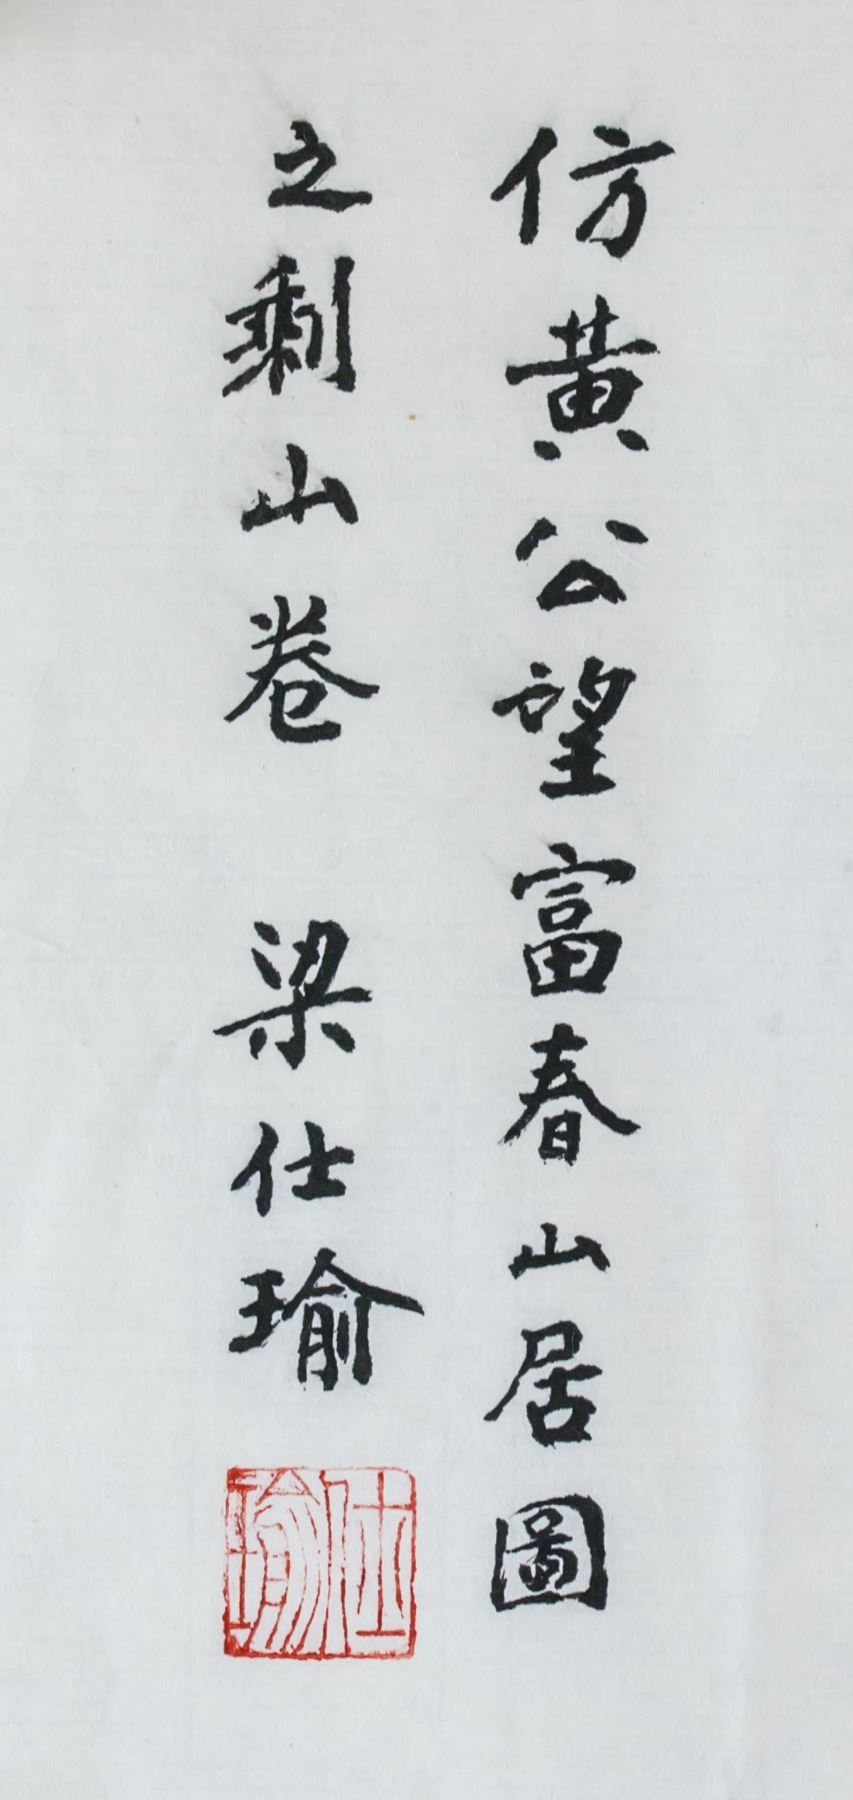 仿黃公望富春山居圖
之剩山卷 梁仕瑜
仕瑜